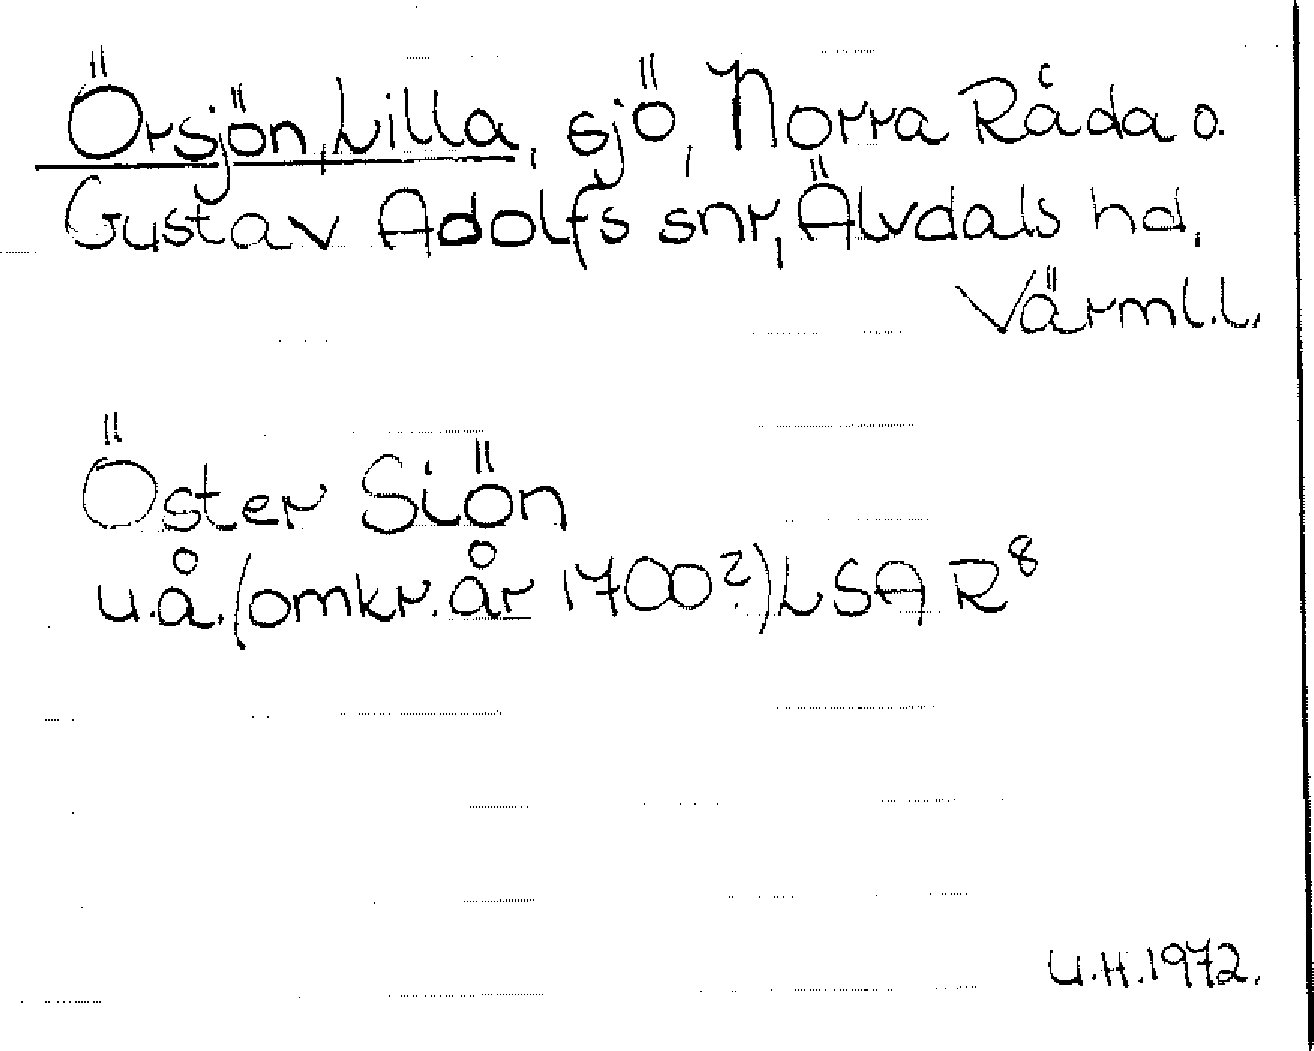 Örsjön, Lilla, sjö, Norra Råda o.
Gustav Adolfs snr, Älvdals hd,
Värml.l.
Öster Siön
u.å. (omkr. år 1700?) LSA R8
U.H. 1972.